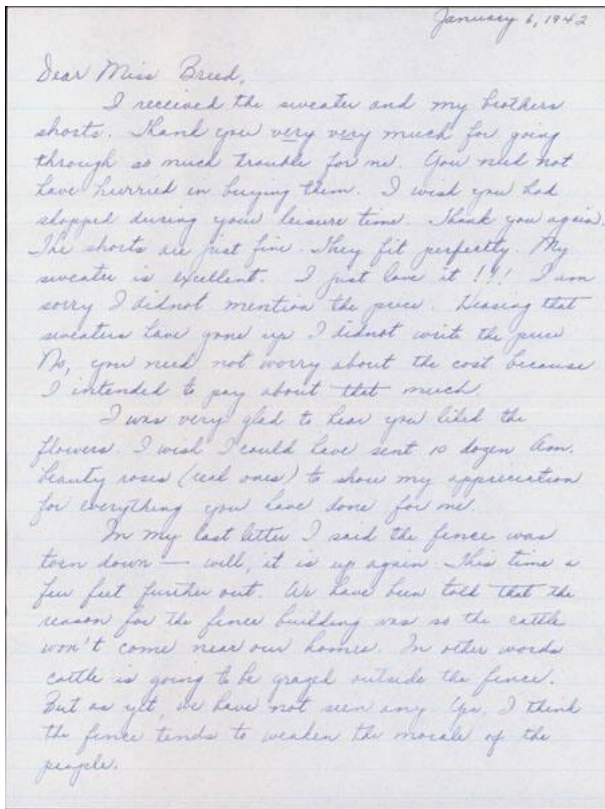 January 6, 1942
Dear Miss Breed,
I received the sweater and my brothers
shorts. Thank you very very much for going
through so much trouble for me. You need not
have hurried in buying them. I wish you had
shopped during your leisure time. Thank you again.
The shorts are just fine. They fit perfectly. My
sweater is excellent. I just love it!!! I am
sorry I didnot mention the price. Hearing that
sweaters have gone up I didnot write the price
No, you need not worry about the cost because
I intended to pay about that much.
I was very glad to hear you liked the
flowers. I wish I could have sent 10 dozen Am.
beauty roses (real ones) to show my appreciation
for everything you have done for me.
In my last letter I said the fence was
torn down — well, it is up again. This time a
few feet further out. We have been told that the
reason for the fence building was so the cattle
won't come near our homes. In other words
cattle is going to be grazed outside the fence.
But as yet, we have not seen any. I think
the fence tends to weaken the morale of the
people.